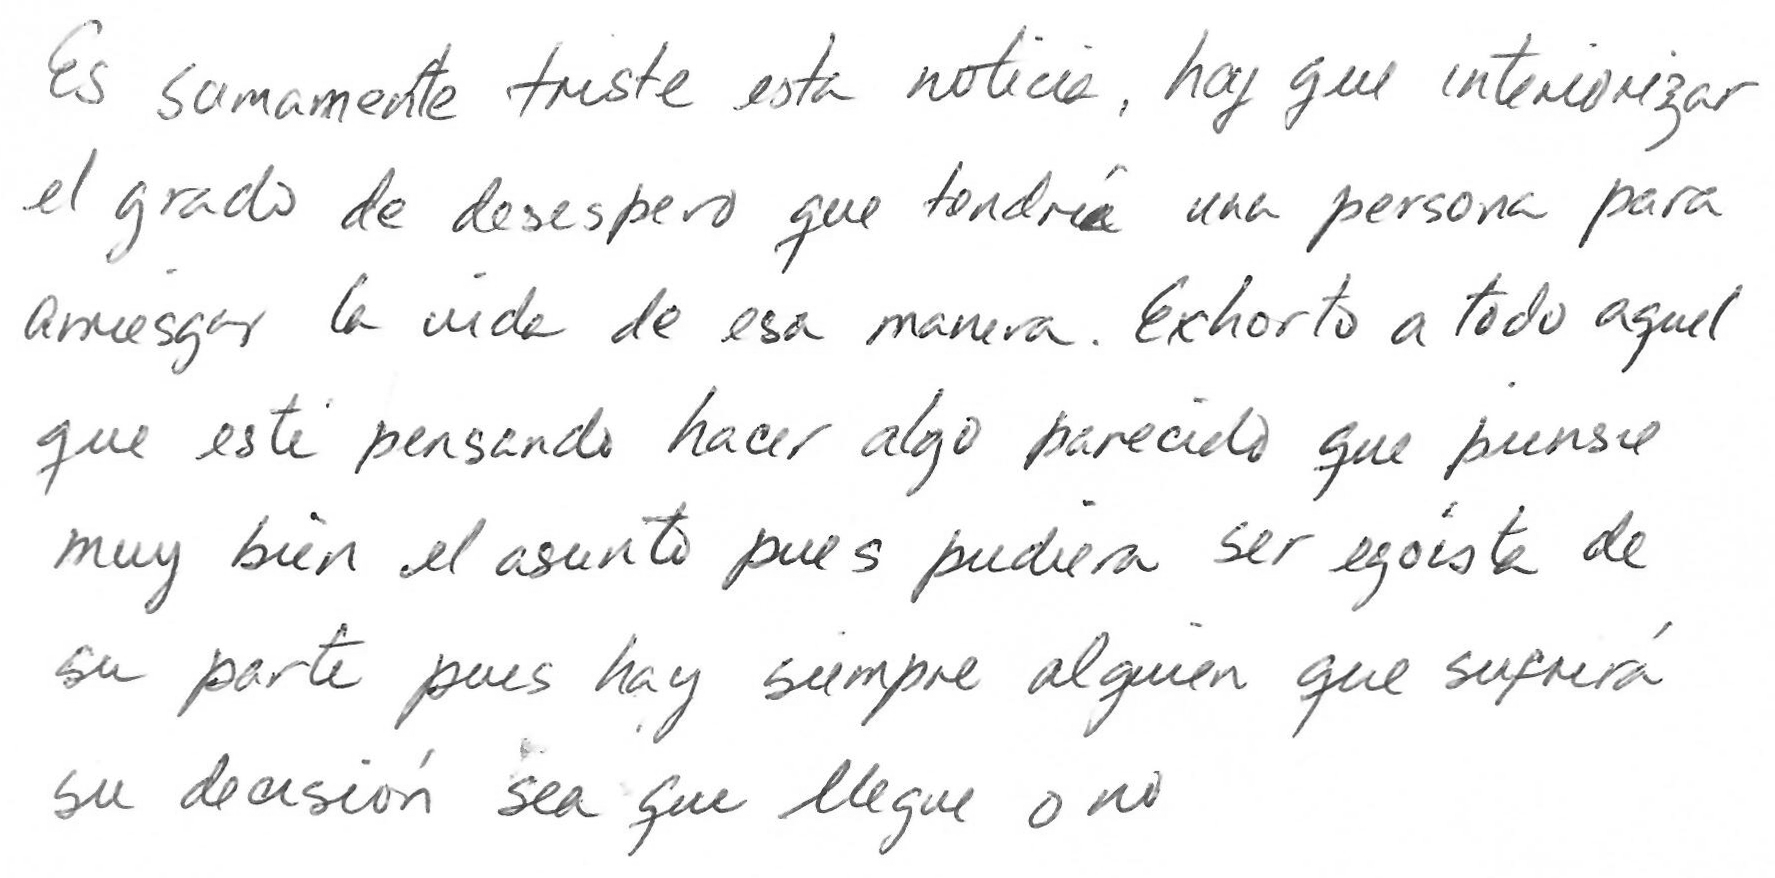 Es sumamente triste esta noticia, hay que interiorizar
el grado de desespero que tendría una persona para
arriesgar la vida de esa manera. Exhorto a todo aquel
que esté pensando hacer algo parecido que piense
muy bien el asunto pues pudiera ser egoísta de
su parte pues hay siempre alguien que sufrirá
su decisión sea que llegue o no